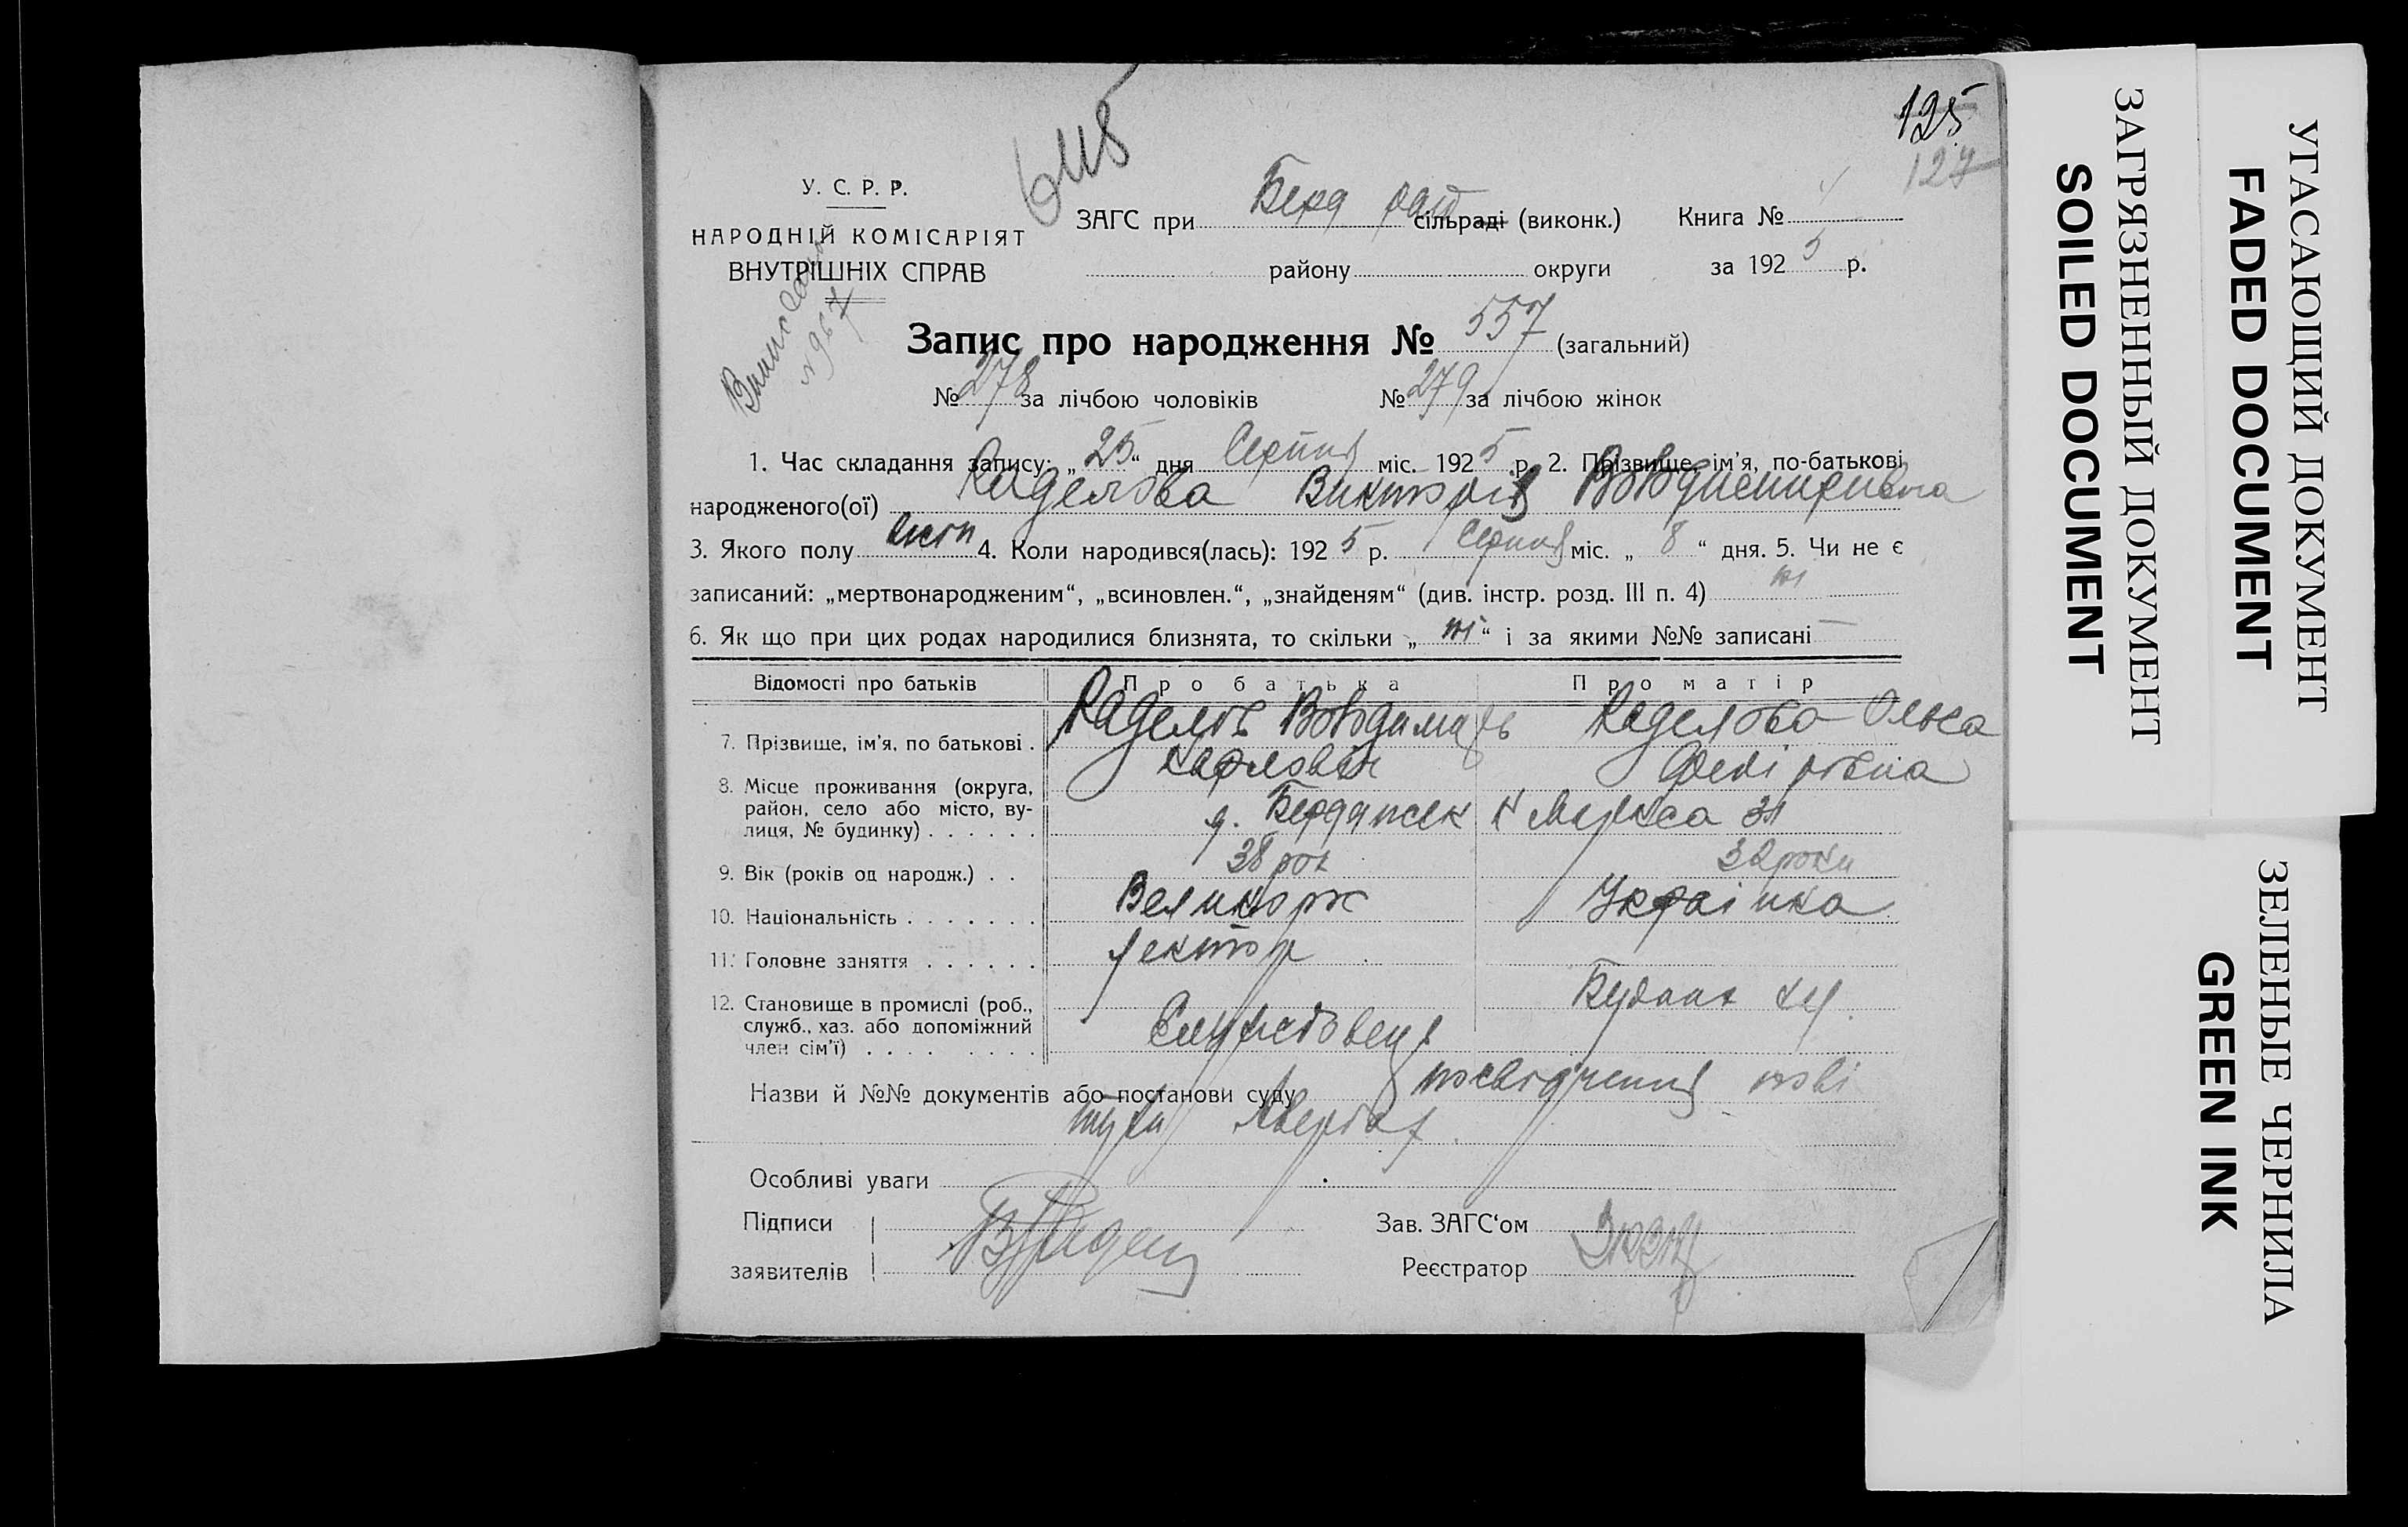 125
127
6118
У. С. Р. Р.
НАРОДНІЙ КОМІСАРІЯТ
ВНУТРІШНІХ СПРАВ
ЗАГС при Берд рай сільраді (виконк.) Книга № 4
району округи за 1925 р.
Запис про народження № 557 (загальний)
№ 278 за лічбою чоловіків № 279 за лічбою жінок
1. Час складання запису: „25“ дня Серпня міс. 1925 р. 2. Прізвище, ім’я, по-батькові
народженого(ої) Раделова Викторія Володимирівна
3. Якого полу жін 4. Коли народився(лась): 1925 р. Серпня міс. „8“ дня. 5. Чи не є
записаний: „мертвонародженим“, „всиновлен.“, „знайденям“ (див. інстр. розд. III п. 4) ні
6. Як що при цих родах народилися близнята, то скільки „ні“ і за якими №№ записані —
Відомості про батьків Про батька Про матір
7. Прізвище, ім’я, по батькові . Раделов Володимир Раделова Ольга
Карлович Федірівна
8. Місце проживання (округа,
район, село або місто, ву-
лиця, № будинку) . . . . . . Бердянськ К Маркса 31
9. Вік (років од народж.) . . 38 рок 32 роки
10. Національність . . . . . . . Великорос Українка
11. Головне заняття . . . . . . лектор
12. Становище в промислі (роб.,
служб., хаз. або допоміжний
член сім’ї) . . . . . . . .
Назви й №№ документів або постанови суду посвідчення
Особливі уваги
Підписи
заявителів
Зав. ЗАГС‘ом
Реєстратор
УГАСАЮЩИЙ ДОКУМЕНТ
FADED DOCUMENT
ЗАГРЯЗНЕННЫЙ ДОКУМЕНТ
SOILED DOCUMENT
ЗЕЛЕНЫЕ ЧЕРНИЛА
GREEN INK